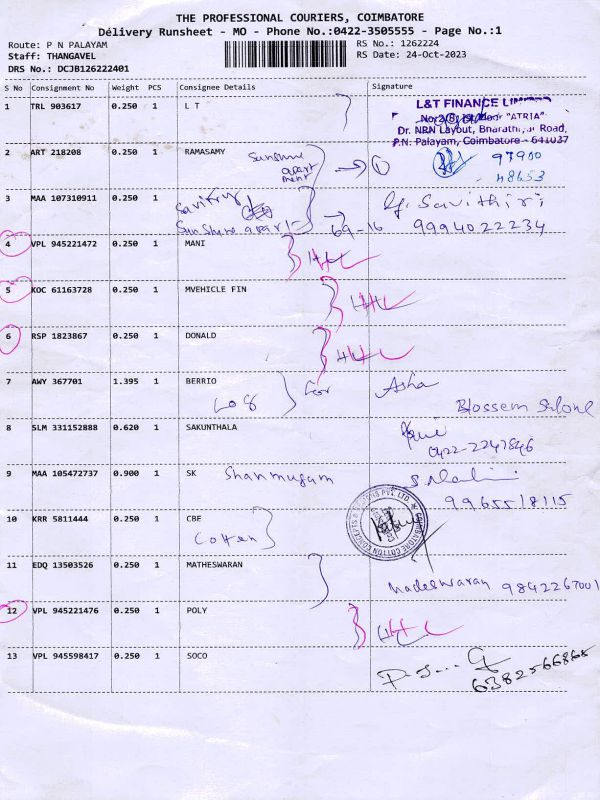 THE PROFESSIONAL COURIERS, COIMBATORE
Délivery Runsheet - MO - Phone No.:0422-3505555 - Page No.:1
Route: P N PALAYAM
RS No.: 1262224
Staff: THANGAVEL
RS Date: 24-Oct-2023
DRS No.: DCJB126222401
S No Consignment No Weight PCS Consignee Details Signature
1 TRL 903617 0.250 1 L T
L&T FINANCE
"ATRIA"
Dr. NRN Layout, Bharathi Road,
P.N: Palayam, Coimbatore - 641037
2 ART 218208 0.250 1 RAMASAMY
Sunshine apartment
97900
48653
3 MAA 107310911 0.250 1
Sunshine apart
69-16
Savithiri
9994022234
4 VPL 945221472 0.250 1 MANI
5 KOC 61163728 0.250 1 MVEHICLE FIN
6 RSP 1823867 0.250 1 DONALD
7 AWY 367701 1.395 1 BERRIO
for Asha
Blossem
8 SLM 331152888 0.620 1 SAKUNTHALA
0422-2247846
9 MAA 105472737 0.900 1 SK Shanmugam
S
9965518115
10 KRR 5811444 0.250 1 CBE
Cotten
COIMBATORE COTTON CONCEPTS PVT. LTD.
11 EDQ 13503526 0.250 1 MATHESWARAN
Madeswaran 9842267001
12 VPL 945221476 0.250 1 POLY
13 VPL 945598417 0.250 1 SOCO
6382566868